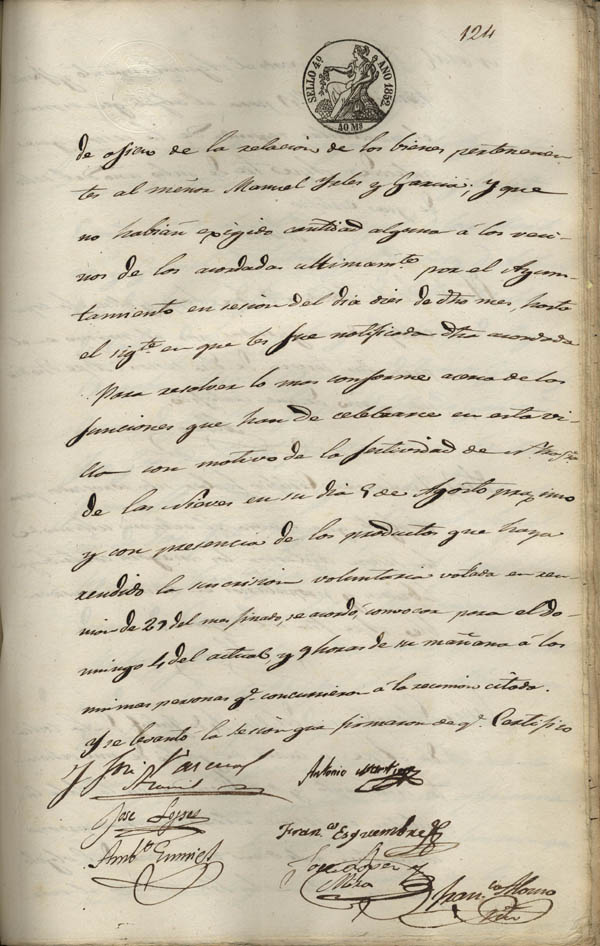 124
SELLO 4º AÑO 1852.
40 Ms
de oficio de la relacion de los bienes pertenecien-
tes al menor Manuel Yvles y Garcia; y que
no habian exigido cantidad alguna á los veci-
nos de los acordadas ultimamte. por el Ayun-
tamiento en sesion del dia dies de dho mes, hasta
el sigte. en que les fue notificada dha acordada
Para resolver lo mas conforme acerca de las
funciones que han de celebrarse en esta vi-
lla con motivo de la festividad de Ntra. Sra.
de las Nieves en su dia 5 de Agosto proximo
y con presencia de los productos que haya
rendido la suscrision voluntaria votada en reu-
nion de 29 del mes finado, se acordó, convocar para el do-
mingo 4 del actual y 9 horas de su mañana á las
mismas personas qe. concurrieron á la reunion citada.
Y se levantó la sesion que firmaron de qe. Certifico
José Pascual
Antonio Martinez
Jose Lopez
Francco. Esquembre
Ambo.
Jose Lopez y
Mira
Franco. Alonso